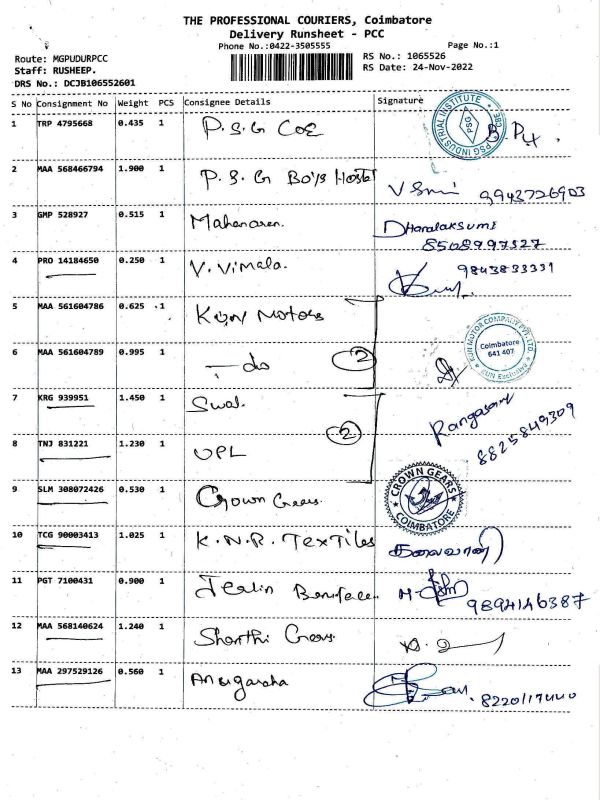 THE PROFESSIONAL COURIERS, Coimbatore
Delivery Runsheet - PCC
Phone No.:0422-3505555 Page No.:1
Route: MGPUDURPCC RS No.: 1065526
Staff: RUSHEEP. RS Date: 24-Nov-2022
DRS No.: DCJB106552601
S No Consignment No Weight PCS Consignee Details Signature
1 TRP 4795668 0.435 1 P.S.G CoE PSG INDUSTRIAL INSTITUTE CBE PSG
2 MAA 568466794 1.900 1 P.S.G Boys Hostel 9943726903
3 GMP 528927 0.515 1 Dharalaksumi
8508997327
4 PRO 14184650 0.250 1 V. Vimala. 9843833331
5 MAA 561604786 0.625 1 Kun Motors KUN MOTOR COMPANY PVT. LTD. Coimbatore 641 407 KUN Exclusive
6 MAA 561604789 0.995 1 - do 2
7 KRG 939951 1.450 1 Swal. Rangasamy
8825849309
8 TNJ 831221 1.230 1 UPL 2
9 SLM 308072426 0.530 1 Crown Gears. CROWN GEARS COIMBATORE
10 TCG 90003413 1.025 1 K.N.R. Textiles கலைவாணி
11 PGT 7100431 0.900 1 9894146387
12 MAA 568140624 1.240 1 Shanthi Gears.
13 MAA 297529126 0.560 1 Anugaraha